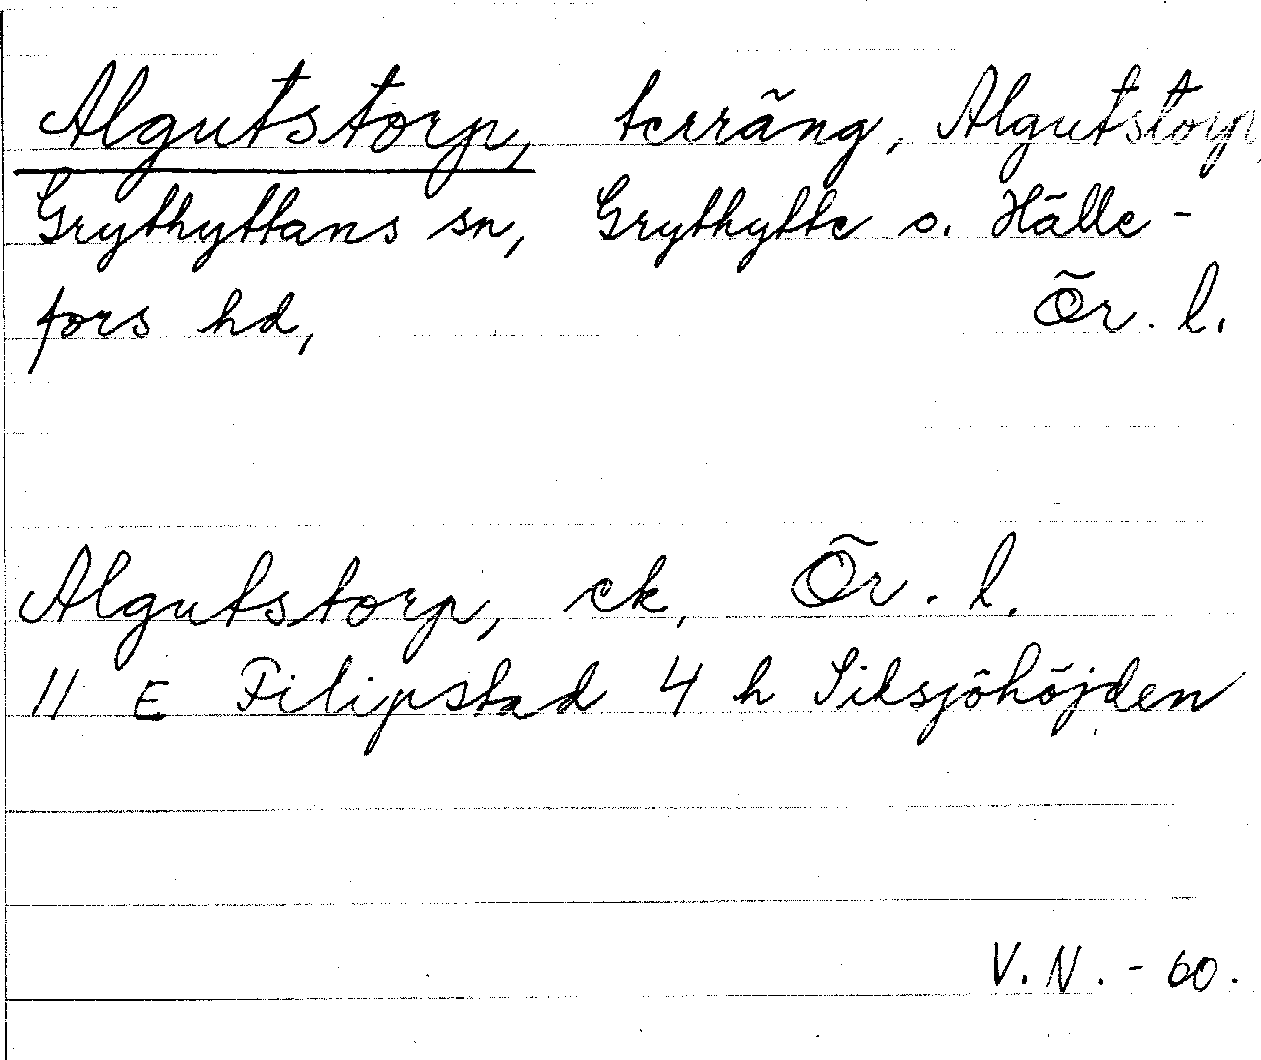 Algutstorp, terräng, Algutstorp,
Grythyttans sn, Grythytte o. Hälle-
fors hd, Ör. l.
Algutstorp, ek, Ör. l.
11 E Filipstad 4 h Siksjöhöjden
V. N. - 60.